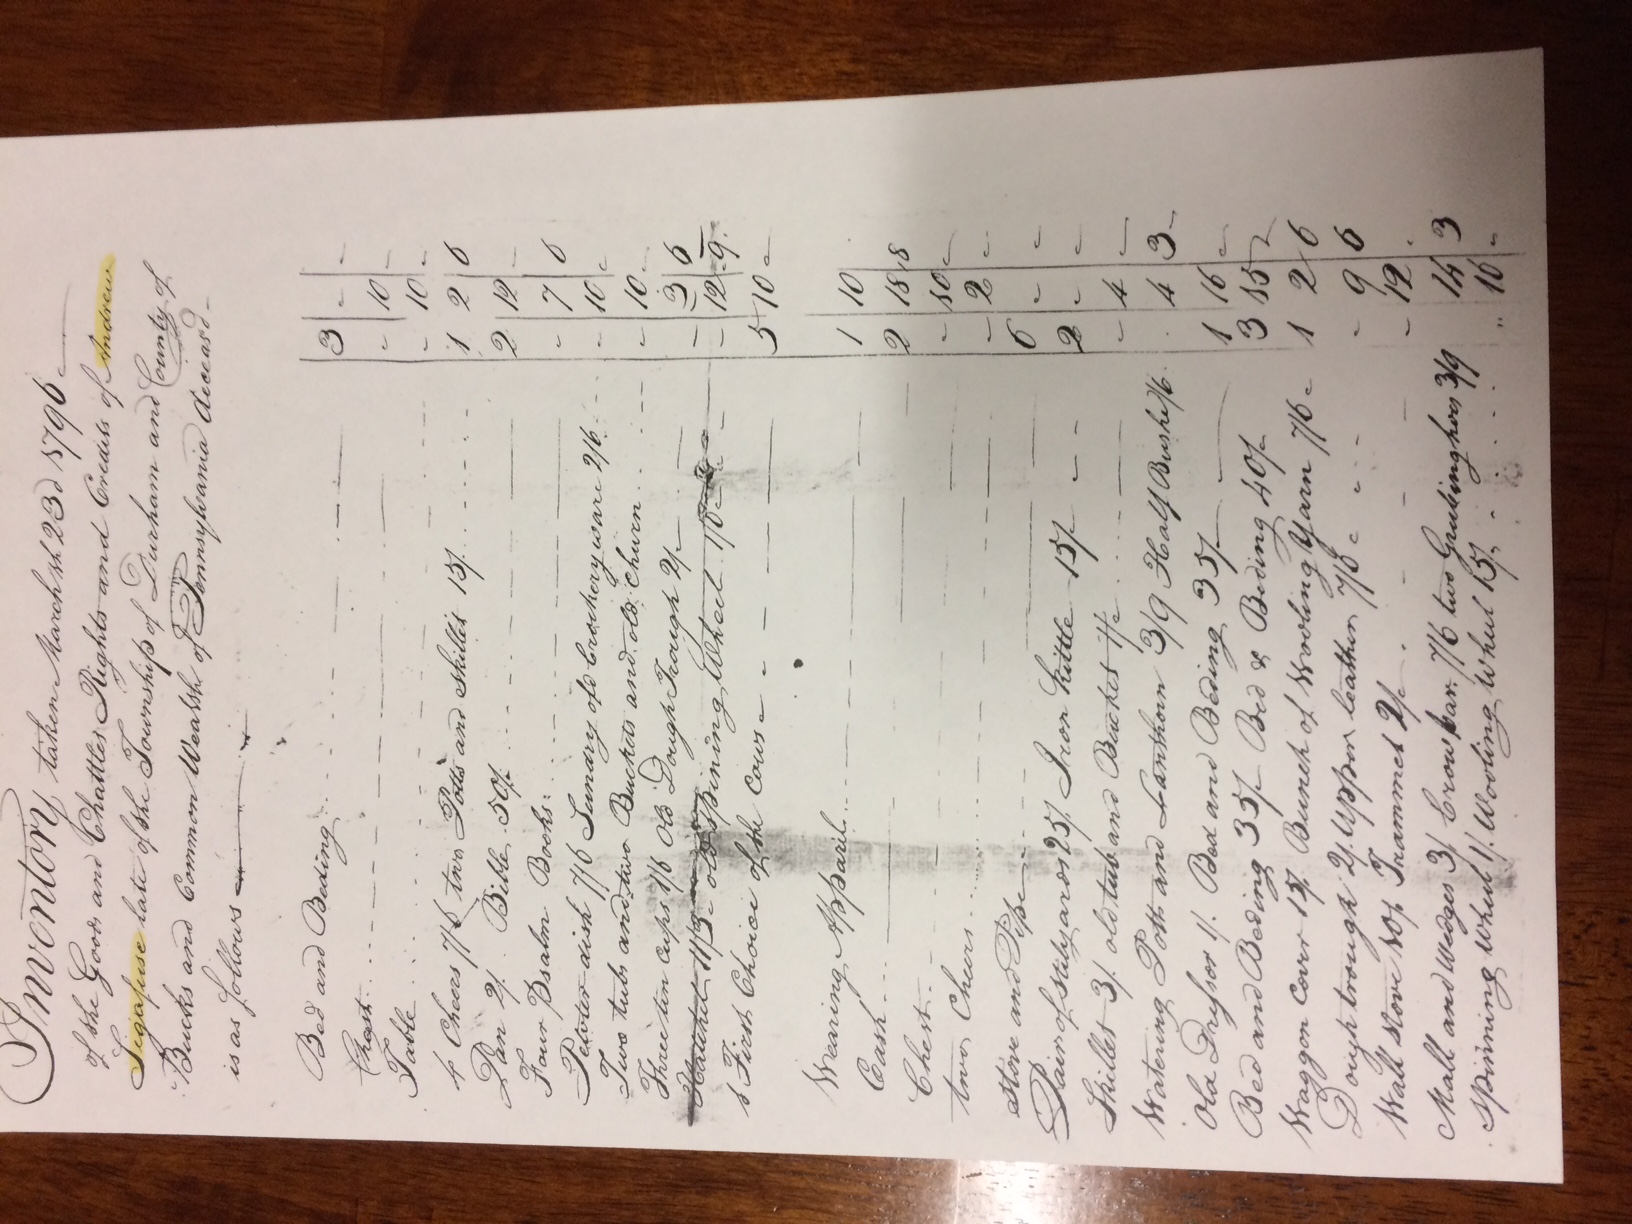 Inventory taken March th 23d 1796
of the Goods and Chattles, Rights and Credits of Andrew
Sigafuse late of the Township of Durham and County of
Bucks and Common Wealth of Pennsylvania deceasd -
is as follows
Bed and Beding 3 - -
Chest - 10 -
Table - 10 -
4 Cheers 7/6 two Potts and skillet 15/. 1 2 6
Pan 2/. Bible 50/. 2 12 -
Four Psalm Books - 7 6
Pewter dish 7/6 Sunary old Crockery ware 2/6 - 10 -
Two tubs and two Buckets and old Churn - 10 -
Three tin cups 1/6 Old Dough Trough 2/ - 3 6
Hatchel 11/3 old Spining Wheel 1/6 - 12 9
1 First Choice of the Cows 5 10 -
Wearing Apparil 1 10
Cash 2 18 8
Chest - 10 -
two Cheers - 2 -
Stove and Pipe 6 - -
Pair of Stilyards 25/. Iron Kittle 15/ 2 - -
Skillet 3/. old tub and Bucket 1/ - 4 -
Watering Pott and Lanthorn 3/9 Half Bushel /6 . 4 3
Old Dresser 1/. Bed and Beding 35/ 1 16 -
Bed and Beding 35/ Bed & Beding 40/ 3 15
Waggon Cover 15/. Bunch of Wooling Yarn 7/6 1 2 6
Dough trough 2/. Upper leather 7/6 - 9 6
Wall stove 10/. Trammel 2/ - 12 .
Mall and Wedges 3/. Crow bar 7/6 two Grubinghoes 3/9 14 3
Spinning wheel 1/. Wooling Wheel 15/. " 16 "